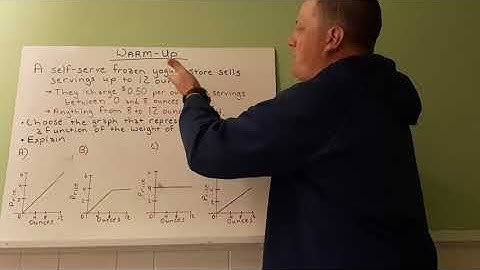 WARM-UP
A self-serve frozen store sells
servings up to 12
→ They charge $0.50 per servings
between 0 and 8 ounces
→ Anything from 8 to 12
• Choose the graph that
a function of the weight of
• Explain
A) B) C)
Price Price Price Price
Ounces Ounces Ounces Ounces